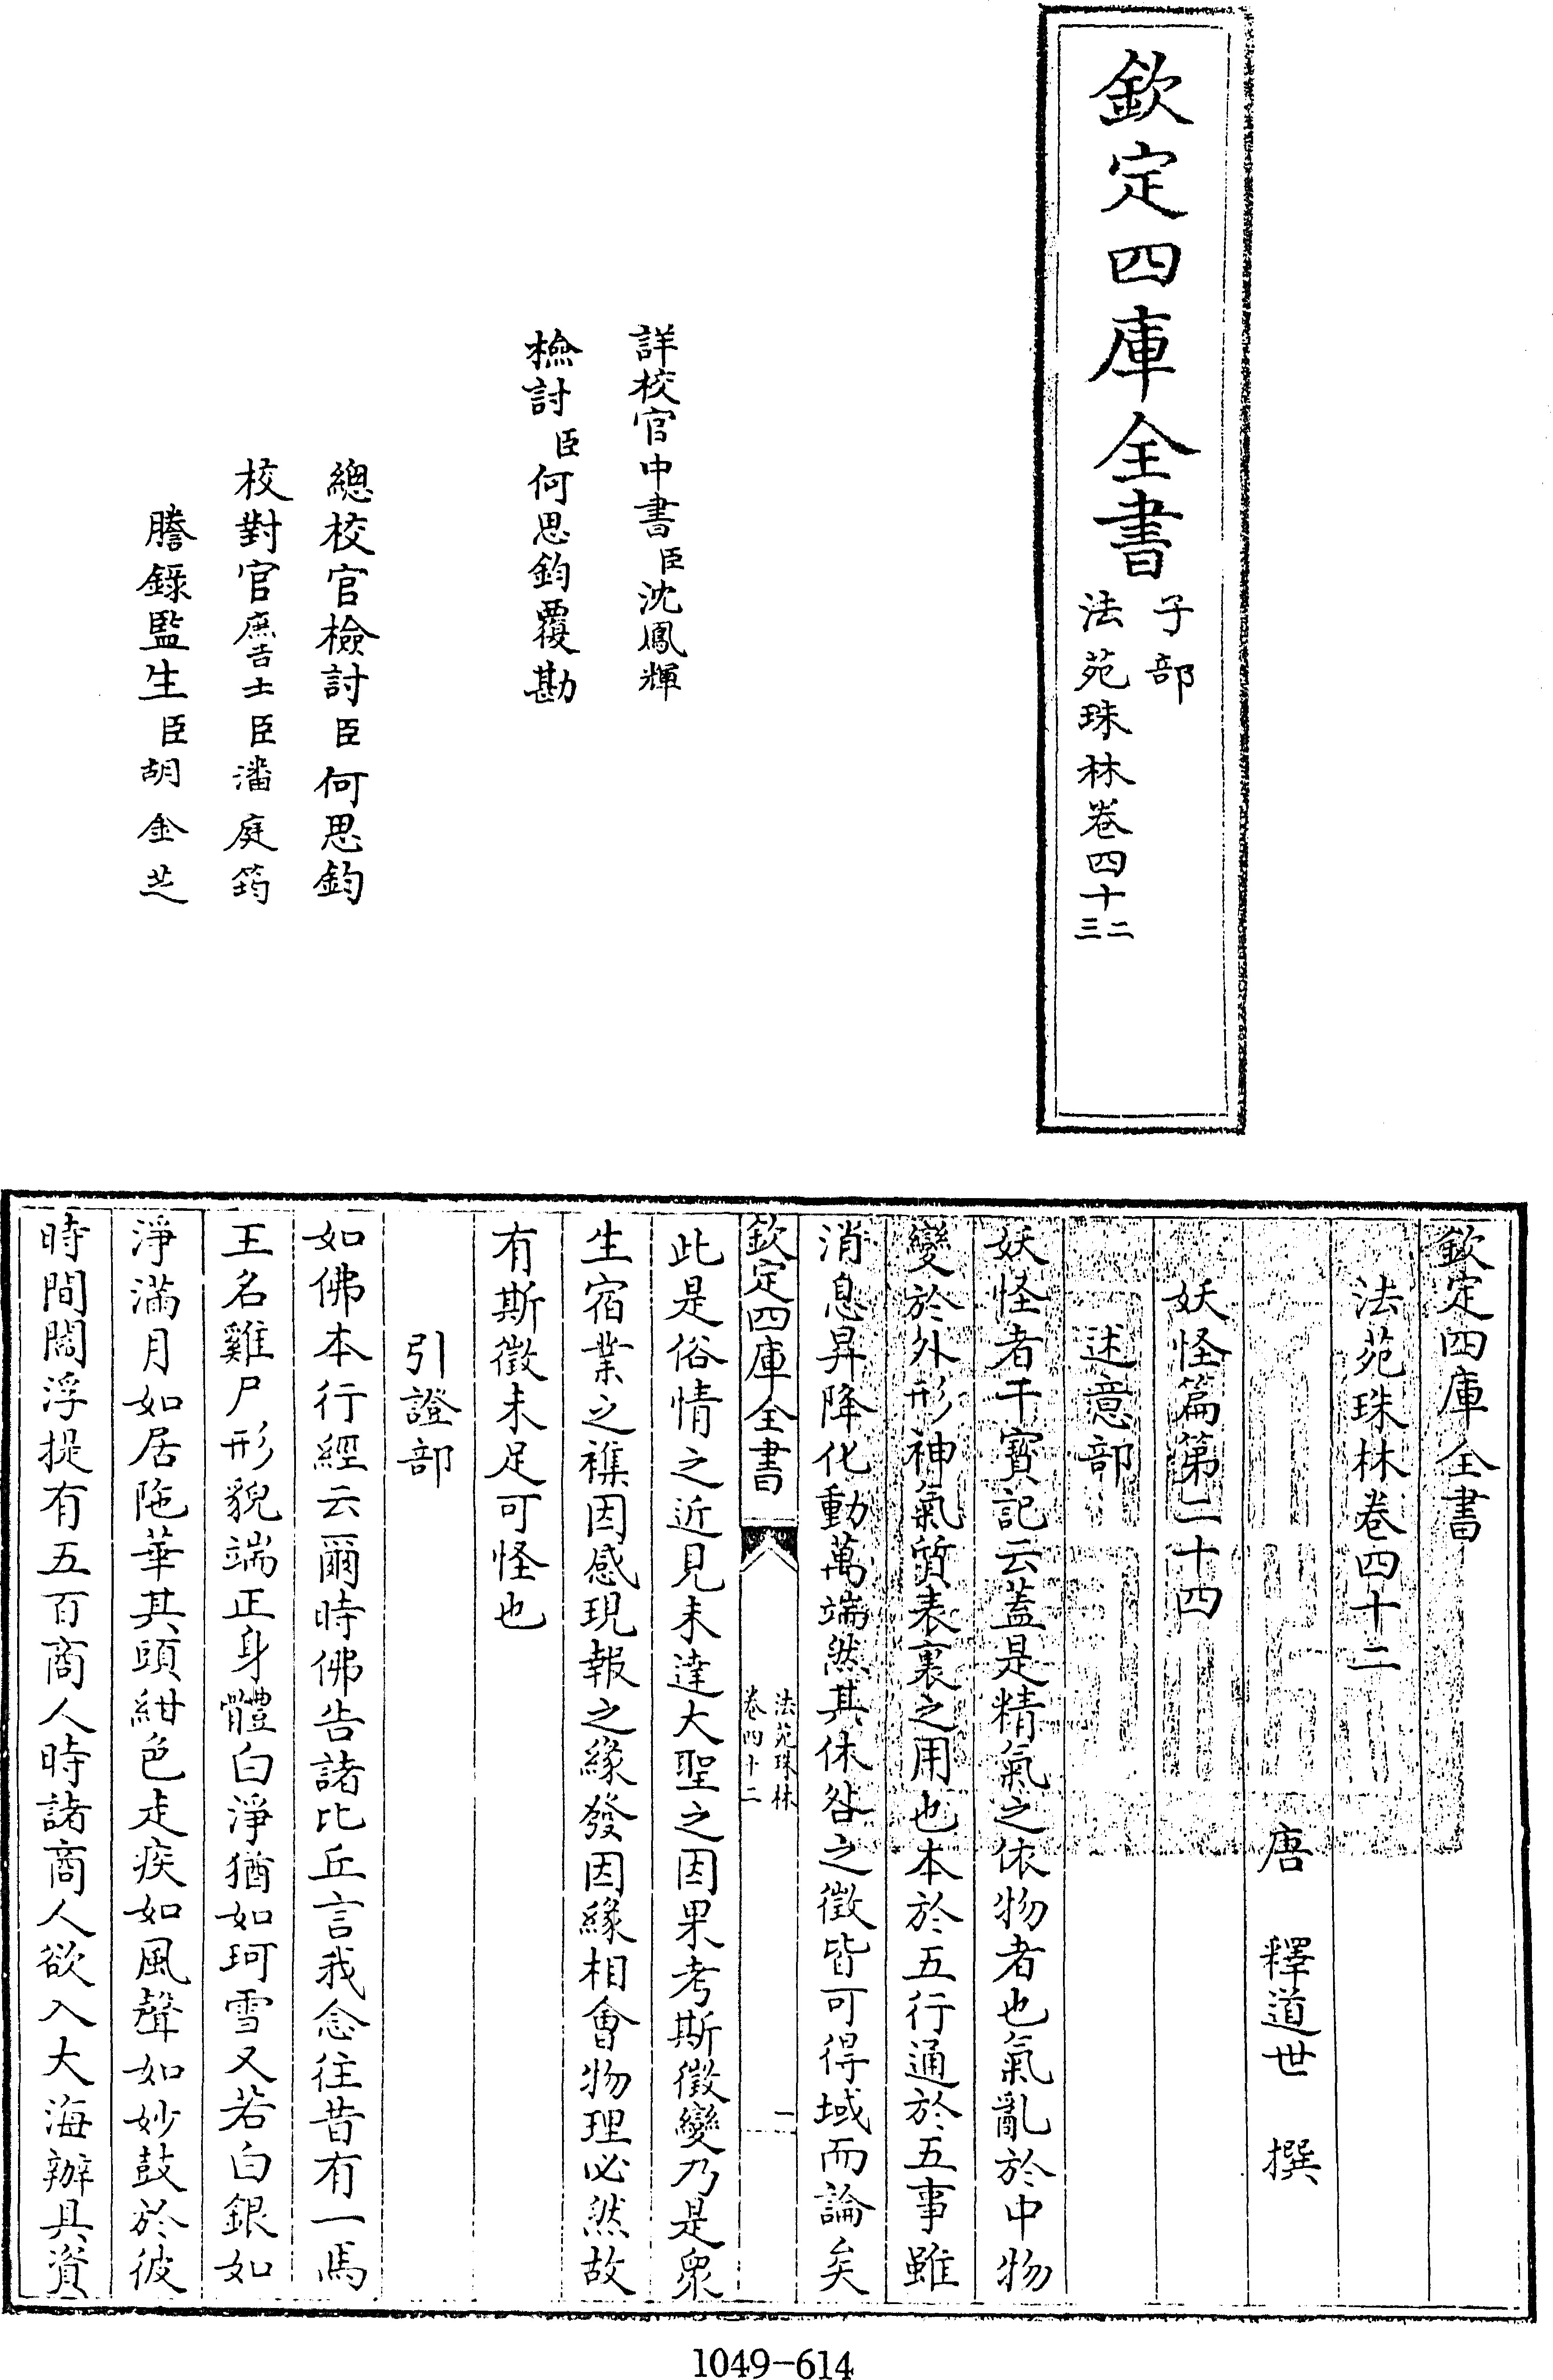 欽定四庫全書
子部
法苑珠林卷四十二三
詳校官中書臣沈鳳輝
檢討臣何思鈞覆勘
總校官檢討臣何思鈞
校對官庶吉士臣潘庭筠
謄錄監生臣胡金芝
欽定四庫全書
法苑珠林卷四十二
唐 釋道世 撰
妖怪篇第二十四
述意部
妖怪者干寳記云蓋是精氣之依物者也氣亂於中物
變於外形神氣質表裏之用也本於五行通於五事雖
消息昇降化動萬端然其休咎之徵皆可得域而論矣
欽定四庫全書
法苑珠林
卷四十二
一
此是俗情之近見未達大聖之因果考斯徵變乃是衆
生宿業之襍因感現報之緣發因緣相會物理必然故
有斯徵未足可怪也
引證部
如佛本行經云爾時佛告諸比丘言我念往昔有一馬
王名雞尸形貌端正身體白淨猶如珂雪又若白銀如
淨滿月如居陁華其頭紺色走疾如風聲如妙鼓於彼
時間閻浮提有五百商人時諸商人欲入大海辦具資
1049-614